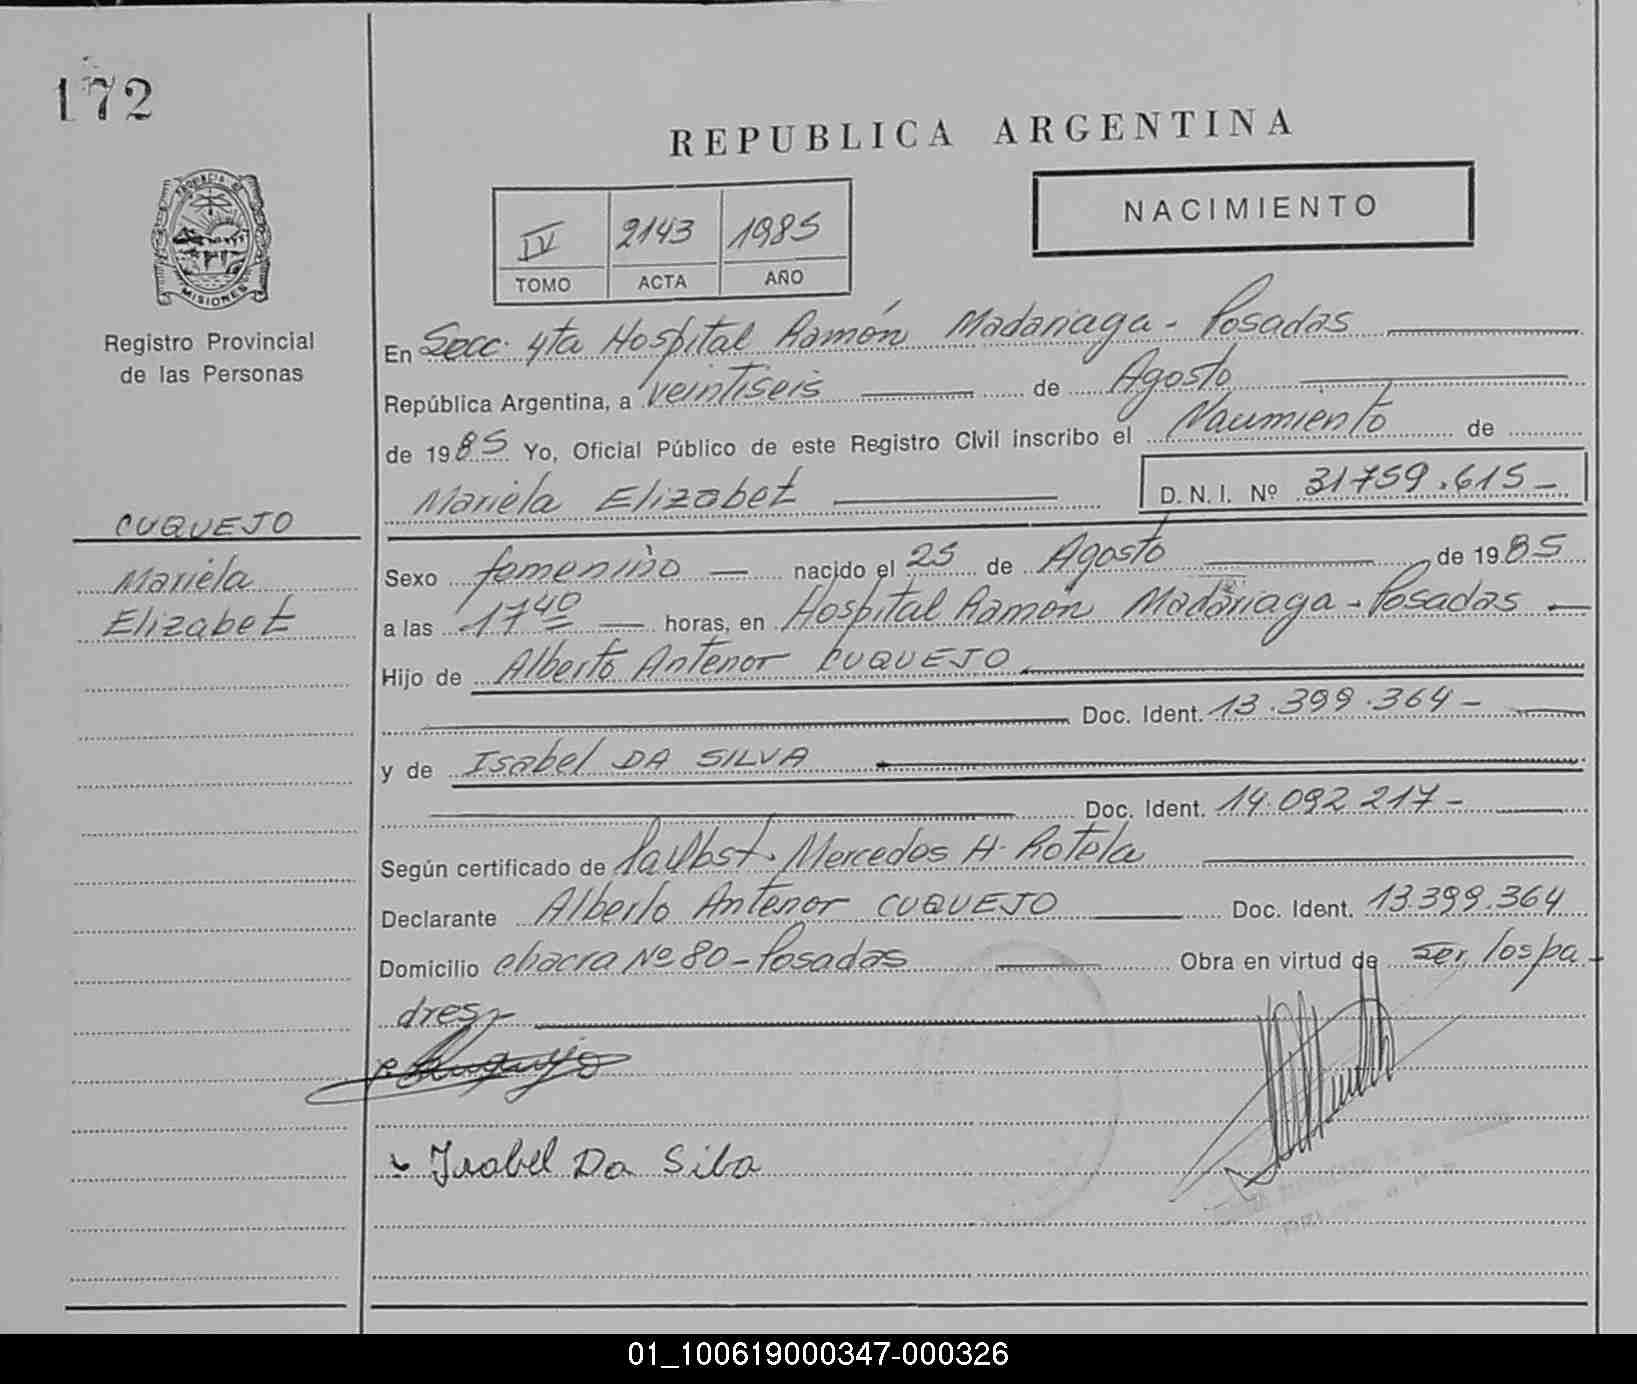 172
REPUBLICA ARGENTINA
NACIMIENTO
IV 2143 1985
TOMO ACTA AÑO
PROVINCIA DE
MISIONES
Registro Provincial
de las Personas
CUQUEJO
Mariela
Elizabet
En Secc. 4ta Hospital Ramón Madariaga - Posadas
República Argentina, a veintiseis de Agosto
de 1985 Yo, Oficial Público de este Registro Civil inscribo el Nacimiento de
Mariela Elizabet D.N.I. Nº 31759.615-
Sexo femenino nacido el 25 de Agosto de 1985
a las 17 40 horas, en Hospital Ramón Madariaga - Posadas
Hijo de Alberto Antenor CUQUEJO
Doc. Ident. 13.399.364-
y de Isabel DA SILVA
Doc. Ident. 14.092.217-
Según certificado de Mercedes H. Rotela
Declarante Alberto Antenor CUQUEJO Doc. Ident. 13.399.364
Domicilio chacra Nº 80 - Posadas Obra en virtud de ser los pa
dres-
Isabel Da Silba
01_100619000347-000326